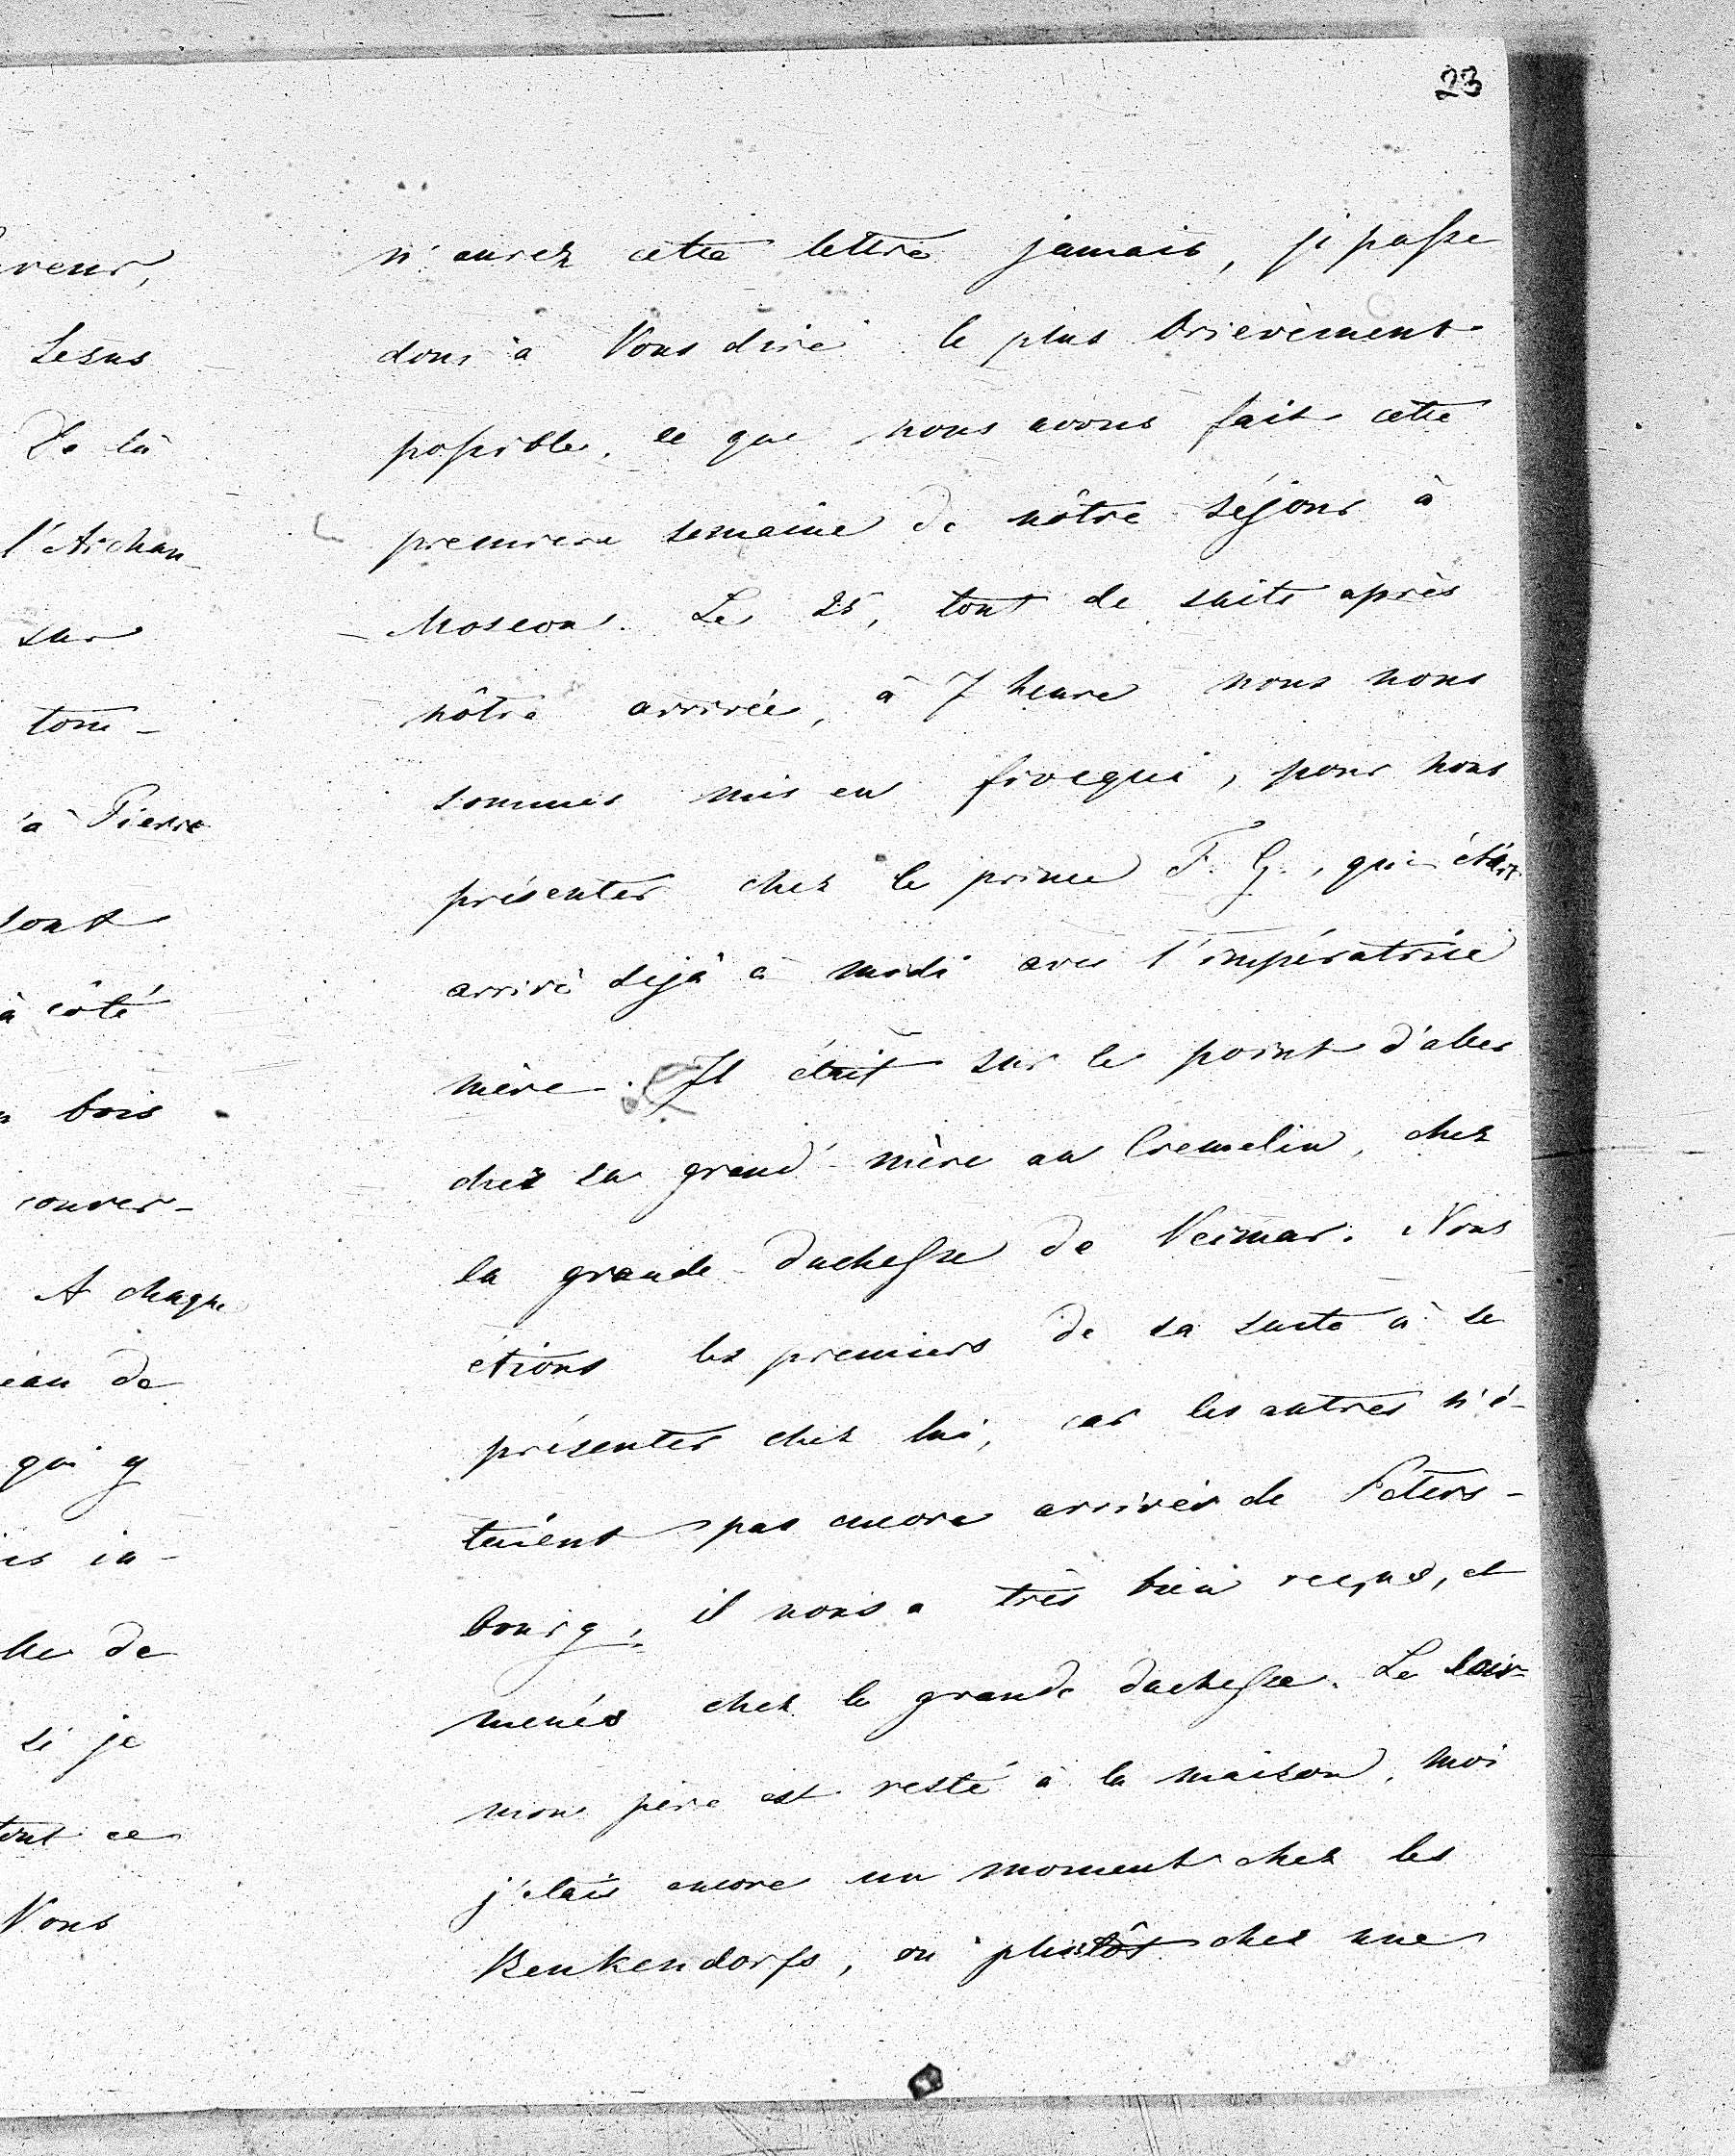 23
n'aurez cette lettre jamais, je passe
donc à Vous dire le plus brievèment
possible, ce que nous avons fait cette
premiere semaine de nôtre séjour à
Moscou. Le 25, tout de suite après
nôtre arrivée, à 7 heure nous nous
sommes mis en fivoqui, pour nous
présenter chez le prince F. G., qui était
arrivé dejà à midi avec l'impératrice
mère. Il était sur le point d'aller
chez sa grand'-mère au Cremelin, chez
la grande-duchesse de Veimar. Nous
etions les premiers de sa suite à se
présenter chez lui, car les autres n'é-
taient pas encore arrivés de Peters-
bourg, il nous a très bien reçus, et
menés chez la grande duchesse. Le soir
mon père est resté à la maison, moi
j'étais encore un moment chez les
Benkendorfs, ou plustôt chez une
reur,
Jesus
De là
l'Archan-
sur
tom-
à Pierre
sont
à côté
bois
couver-
A chaque
eau de
qui y
in-
de
si je
tout ce
Vous